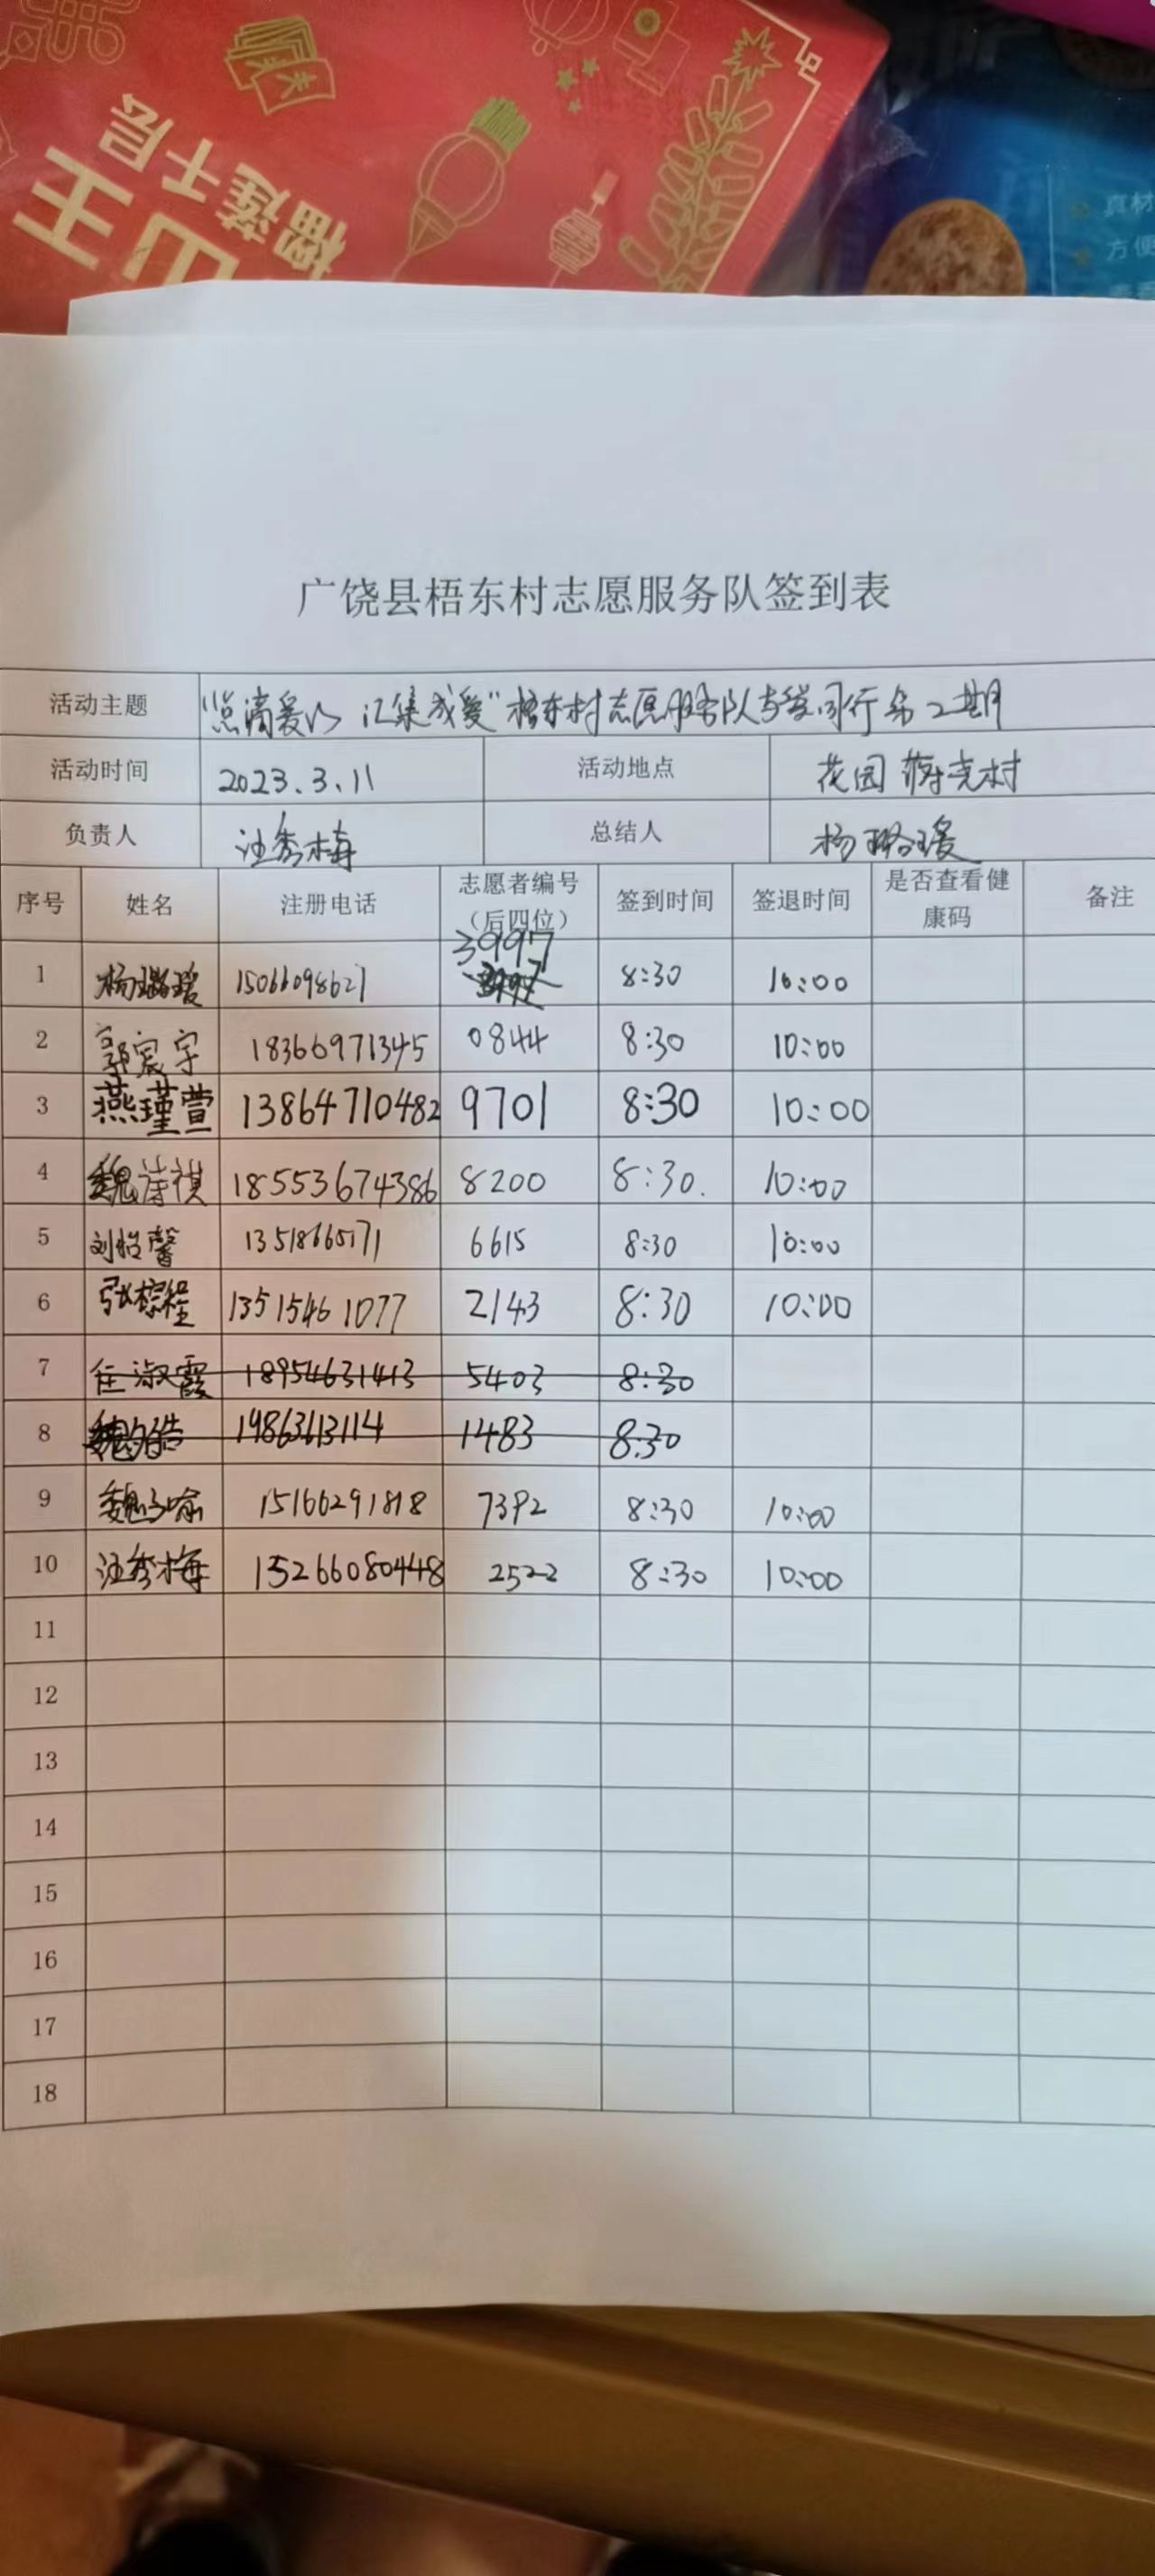 榴莲千层
山王
真材
方便
广饶县梧东村志愿服务队签到表
活动主题 "点滴爱心 汇集成爱"梧东村志愿服务队与爱同行第2期
活动时间 2023.3.11 活动地点 花园 村
负责人 汪秀梅 总结人 杨璐瑗
序号 姓名 注册电话 志愿者编号（后四位） 签到时间 签退时间 是否查看健康码 备注
1 杨璐瑗 15066098621 3997 8:30 10:00
2 郭宸宇 18366971345 0844 8:30 10:00
3 燕瑾萱 13864710482 9701 8:30 10:00
4 魏诗祺 18553674386 8200 8:30. 10:00
5 刘怡馨 6615 8:30 10:00
6 张棕程 13515461077 2143 8:30 10:00
7 任淑霞 18954631413 5403 8:30
8 1483 8:30
9 魏子喻 15166291818 7392 8:30 10:00
10 汪秀梅 15266080448 2522 8:30 10:00
11
12
13
14
15
16
17
18